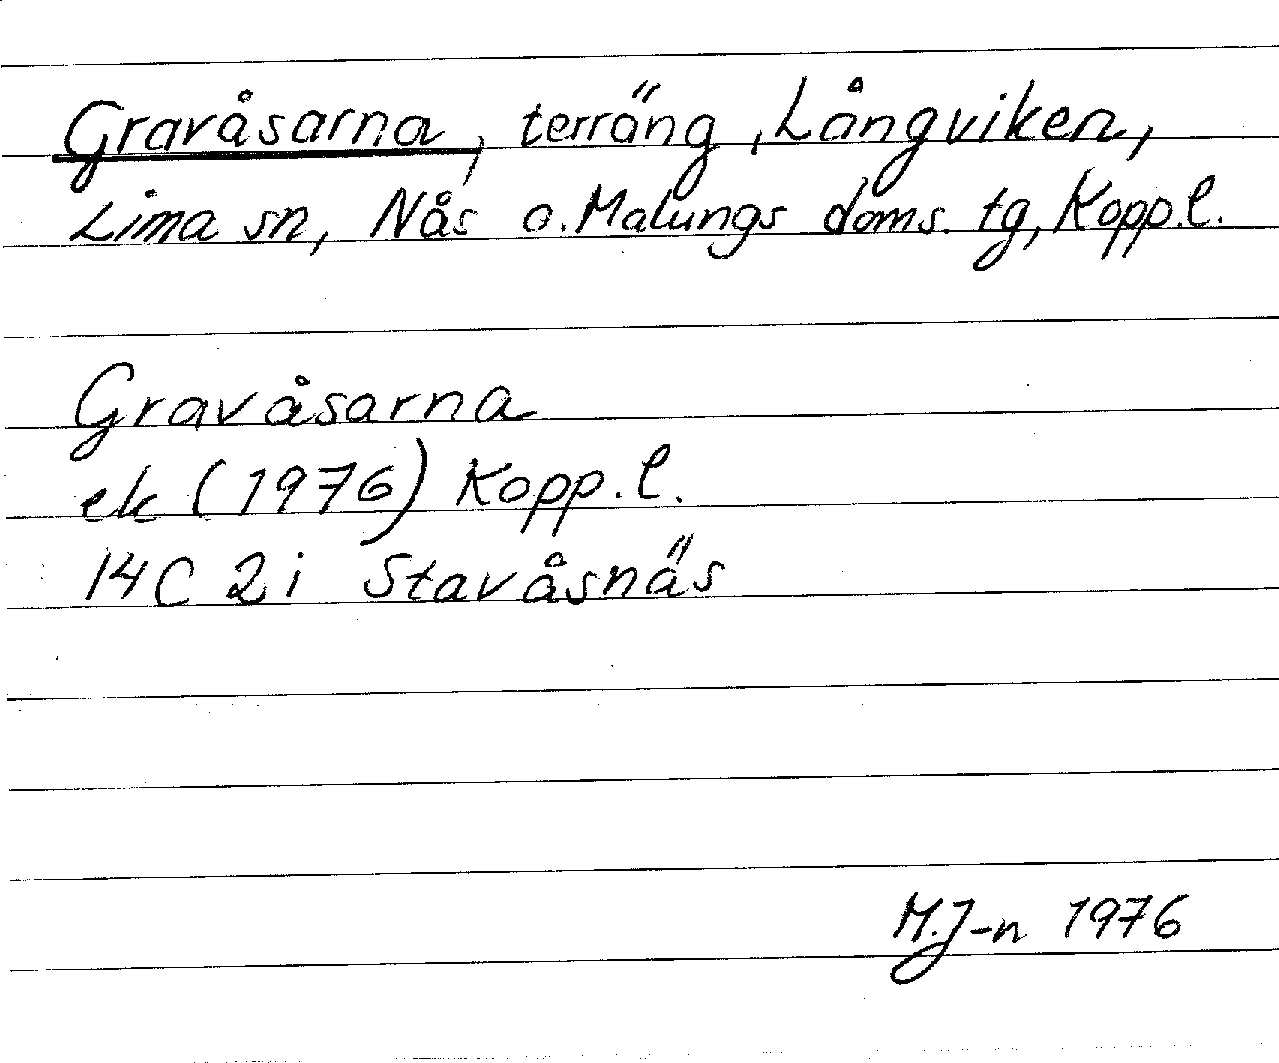 Gravåsarna, terräng, Långviken,
Lima sn, Nås o. Malungs doms. tg, Kopp. l.
Gravåsarna
ek (1976) Kopp. l.
14C 2i Stavåsnäs
M.J-n 1976